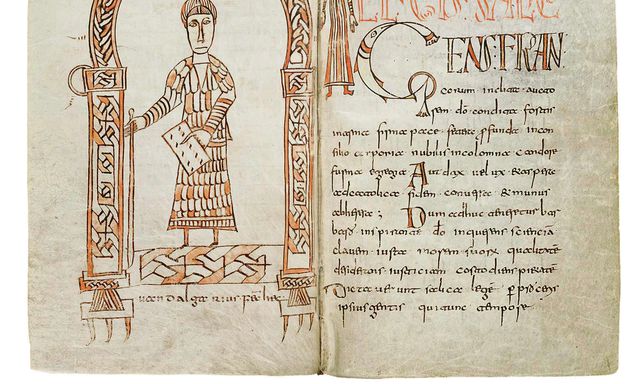 uuandalgarius fec hec
GENS·FRAN
corum· inclita· aucto
rem· dō· condita· fortis
in arma· firma pace· fetera· profunda· in con
silio· corporea· nubilis· incolomna· candore
furma· egregia· Audax· uelox· & aspera·
ad catolica· fidem· conuersa· & munus
ab heresse; Dum adhuc· teneretur bar
bara· inspirante· dō· inquerens· sciencia
clauem· iusta· morem· suorx· qualitate
desiderans· iusticiam· costodiens· pietate
Dictauerunt· salica· lege· per proceris
ipsius gentis· qui tunc· tempore·